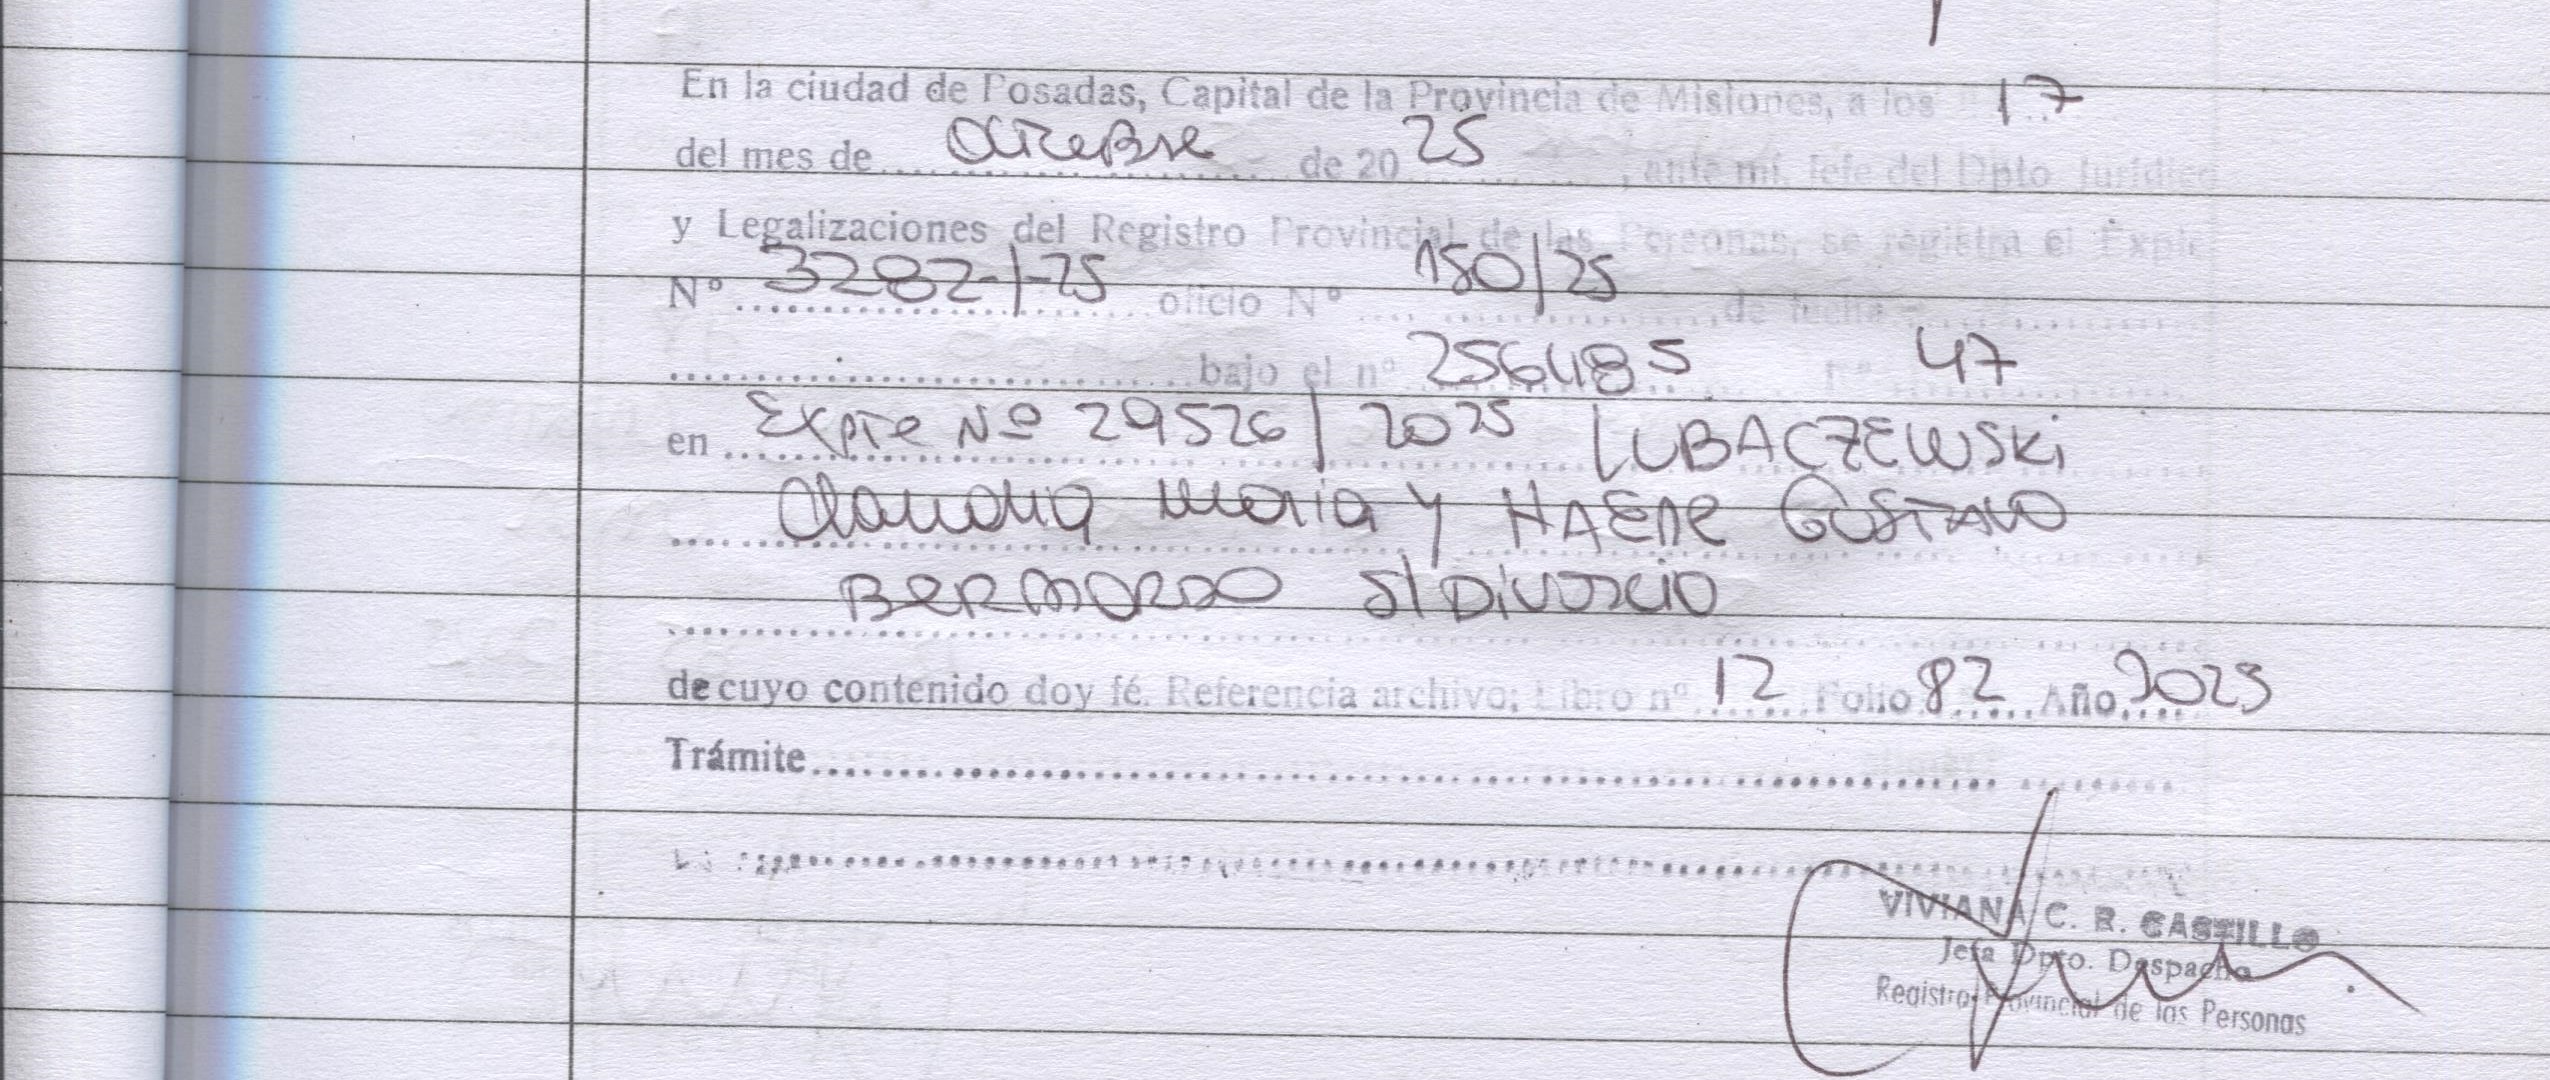 En la ciudad de Posadas, Capital de la Provincia de Misiones, a los 17
del mes de Octubre de 20 25, ante mí, Jefe del Dpto Jurídico
y Legalizaciones del Registro Provincial de las Personas, se registra el Expte
Nº 3282-/-25 oficio Nº 150/25 de fecha
bajo el nº 256485 Fº 47
en Expte Nº 29526/2025 LUBACZEWSKi
Claudia Maria y HAENE GUSTAVO
BERNARDO S/ DiVORCiO
de cuyo contenido doy fé. Referencia archivo; Libro nº 12 Folio 82 Año 2025
Trámite
VIVIANA C. R. CASTILLO
Jefa Dpto. Despacho
Registro Provincial de las Personas